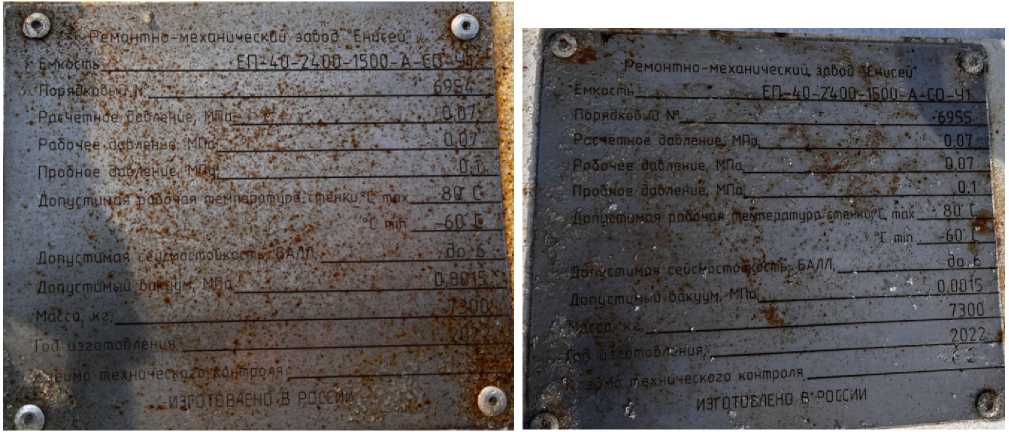 Ремонтно-механический завод "Енисей"
Емкость ЕП-40-2400-1500-А-СО-У1
Порядковый № 6954
Расчетное давление, МПа 0,07
Рабочее давление, МПа 0,07
Пробное давление, МПа 0,1
Допустимая рабочая температура стенки,°С max 80 С
°С min -60 С
Допустимая сейсмостойкость, БАЛЛ, до 6
Допустимый вакуум, МПа 0,0015
Масса, кг, 7300
Год изготовления,
технического контроля
ИЗГОТОВЛЕНО В РОССИИ
Ремонтно-механический завод "Енисей"
Емкость ЕП-40-2400-1500-А-СО-У1
Порядковый № 6955
Расчетное давление, МПа 0,07
Рабочее давление, МПа 0,07
Пробное давление, МПа 0,1
Допустимая рабочая температура стенки,°С max 80 С
°С min -60 С
Допустимая сейсмостойкость, БАЛЛ, до 6
Допустимый вакуум, МПа 0,0015
Масса, кг, 7300
Год изготовления, 2022
технического контроля
ИЗГОТОВЛЕНО В РОССИИ